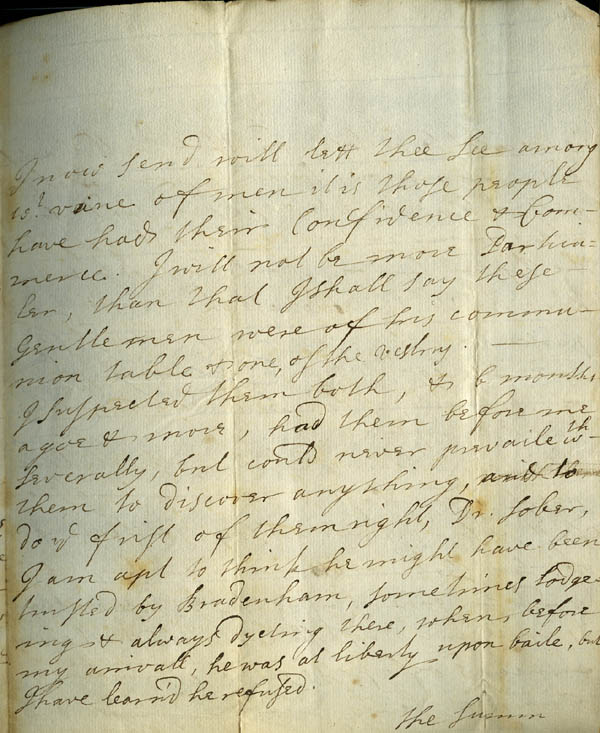 I now send will lett thee see among
wt. vaine of men it is those people
have had their Confidence & Com-
merce. I will not be more Particu-
ler, than that I shall say these
Gentlemen were of his commu-
nion table & one, of the vestry.
I suspected them both, & 6 months
agoe & more, had them before me
severally, but could never prevaile wth
them to discover anything, and to
do ye first of them right, Dr. Sober,
I am apt to think he might have been
trusted by Bradenham, sometimes lodge-
ing & always dyeting there, when, before
my arrivall, he was at liberty upon baile, but
I have learn'd he refused.
the Summ